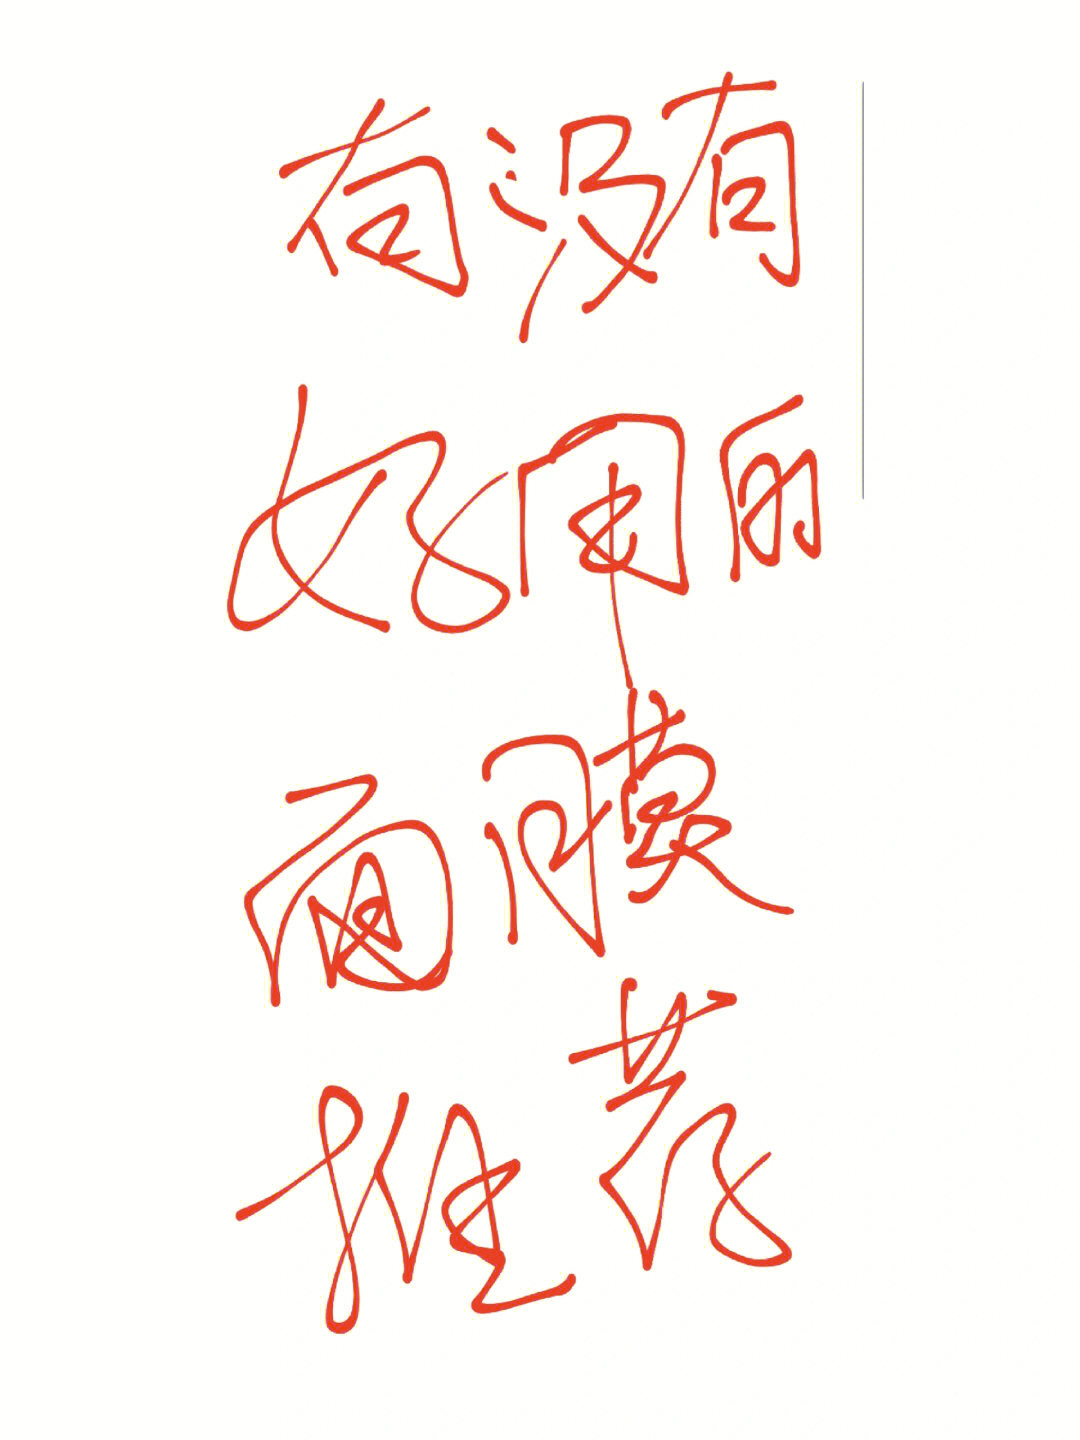 有没有
好用的
面膜
推荐